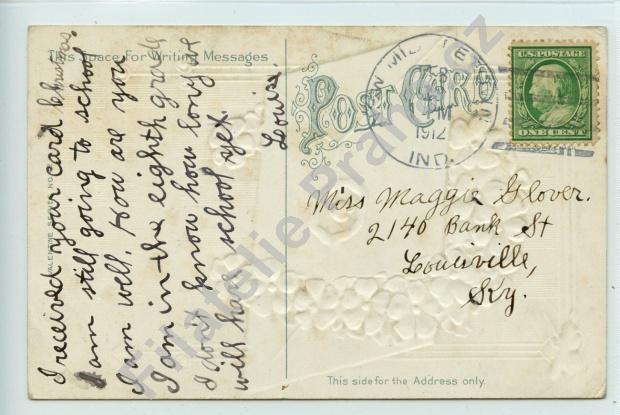 This Space For Writing Messages
POST CARD
NEW MIDDLETOWN
PM
1912
IND.
U.S. POSTAGE
ONE CENT
I received your card Christmas.
I am still going to school
I am well. How are you
I am in the eighth grade
I don't know how long we
will have school yet.
Louise.
Miss Maggie Glover.
2140 Bank St
Louisville,
Ky.
VALENTINE SERIES NO.
This side for the Address only.
Filatelie Prandonz